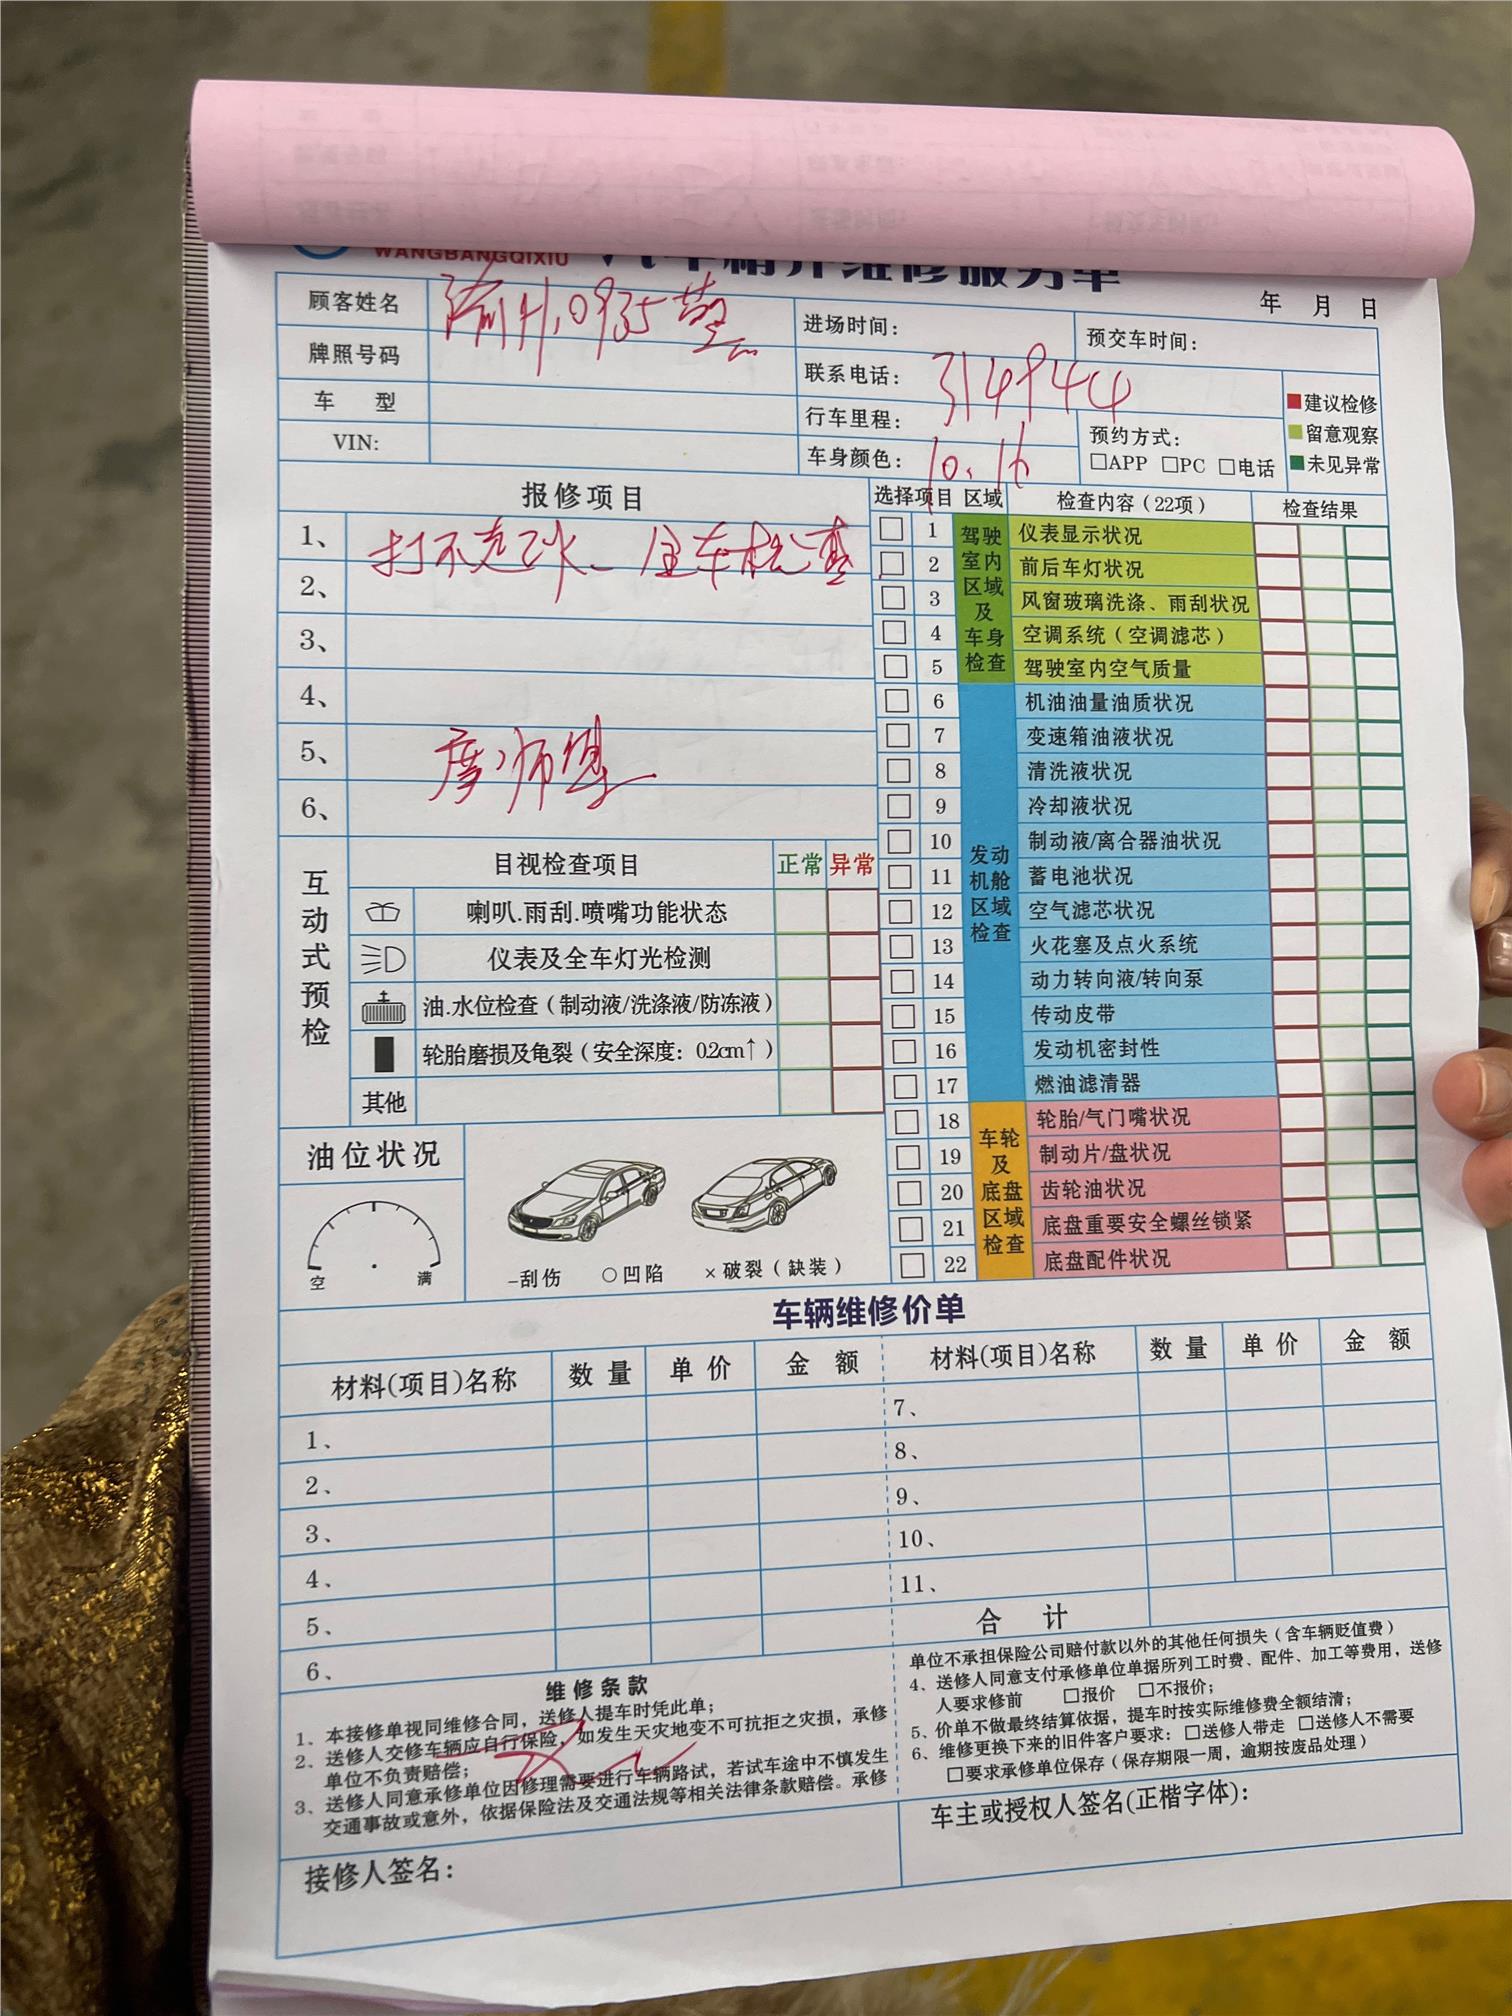 WANGBANGQIXIU
汽车精养维修服务单
年 月 日
顾客姓名
渝A·0935警
进场时间：
预交车时间：
牌照号码
联系电话：
314944
车 型
行车里程：
预约方式：
□APP □PC □电话
VIN:
车身颜色：
10.16
建议检修
留意观察
未见异常
报修项目
1、
打不起火、全车检查
2、
3、
4、
5、
6、
选择项目 区域 检查内容（22项） 检查结果
驾驶室内区域及车身检查
1 仪表显示状况
2 前后车灯状况
3 风窗玻璃洗涤、雨刮状况
4 空调系统（空调滤芯）
5 驾驶室内空气质量
发动机舱区域检查
6 机油油量油质状况
7 变速箱油液状况
8 清洗液状况
9 冷却液状况
10 制动液/离合器油状况
11 蓄电池状况
12 空气滤芯状况
13 火花塞及点火系统
14 动力转向液/转向泵
15 传动皮带
16 发动机密封性
17 燃油滤清器
车轮及底盘区域检查
18 轮胎/气门嘴状况
19 制动片/盘状况
20 齿轮油状况
21 底盘重要安全螺丝锁紧
22 底盘配件状况
互动式预检
目视检查项目 正常 异常
喇叭.雨刮.喷嘴功能状态
仪表及全车灯光检测
油.水位检查（制动液/洗涤液/防冻液）
轮胎磨损及龟裂（安全深度：0.2cm↑）
其他
油位状况
空 满
–刮伤 ○凹陷 ×破裂（缺装）
车辆维修价单
材料(项目)名称 数量 单价 金额
材料(项目)名称 数量 单价 金额
1、
2、
3、
4、
5、
6、
7、
8、
9、
10、
11、
合 计
维修条款
1、本接修单视同维修合同，送修人提车时凭此单；
2、送修人交修车辆应自行保险，如发生天灾地变不可抗拒之灾损，承修
单位不负责赔偿；
3、送修人同意承修单位因修理需要进行车辆路试，若试车途中不慎发生
交通事故或意外，依据保险法及交通法规等相关法律条款赔偿。承修
单位不承担保险公司赔付款以外的其他任何损失（含车辆贬值费）
4、送修人同意支付承修单位单据所列工时费、配件、加工等费用，送修
人要求修前 □报价 □不报价；
5、价单不做最终结算依据，提车时按实际维修费全额结清；
6、维修更换下来的旧件客户要求：□送修人带走 □送修人不需要
□要求承修单位保存（保存期限一周，逾期按废品处理）
接修人签名：
车主或授权人签名(正楷字体)：